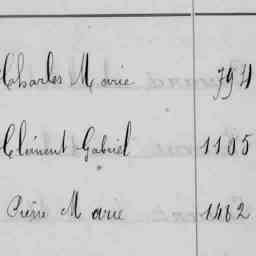 Charles Marie 794
Clément Gabriel 1105
Pierre Marie 1482